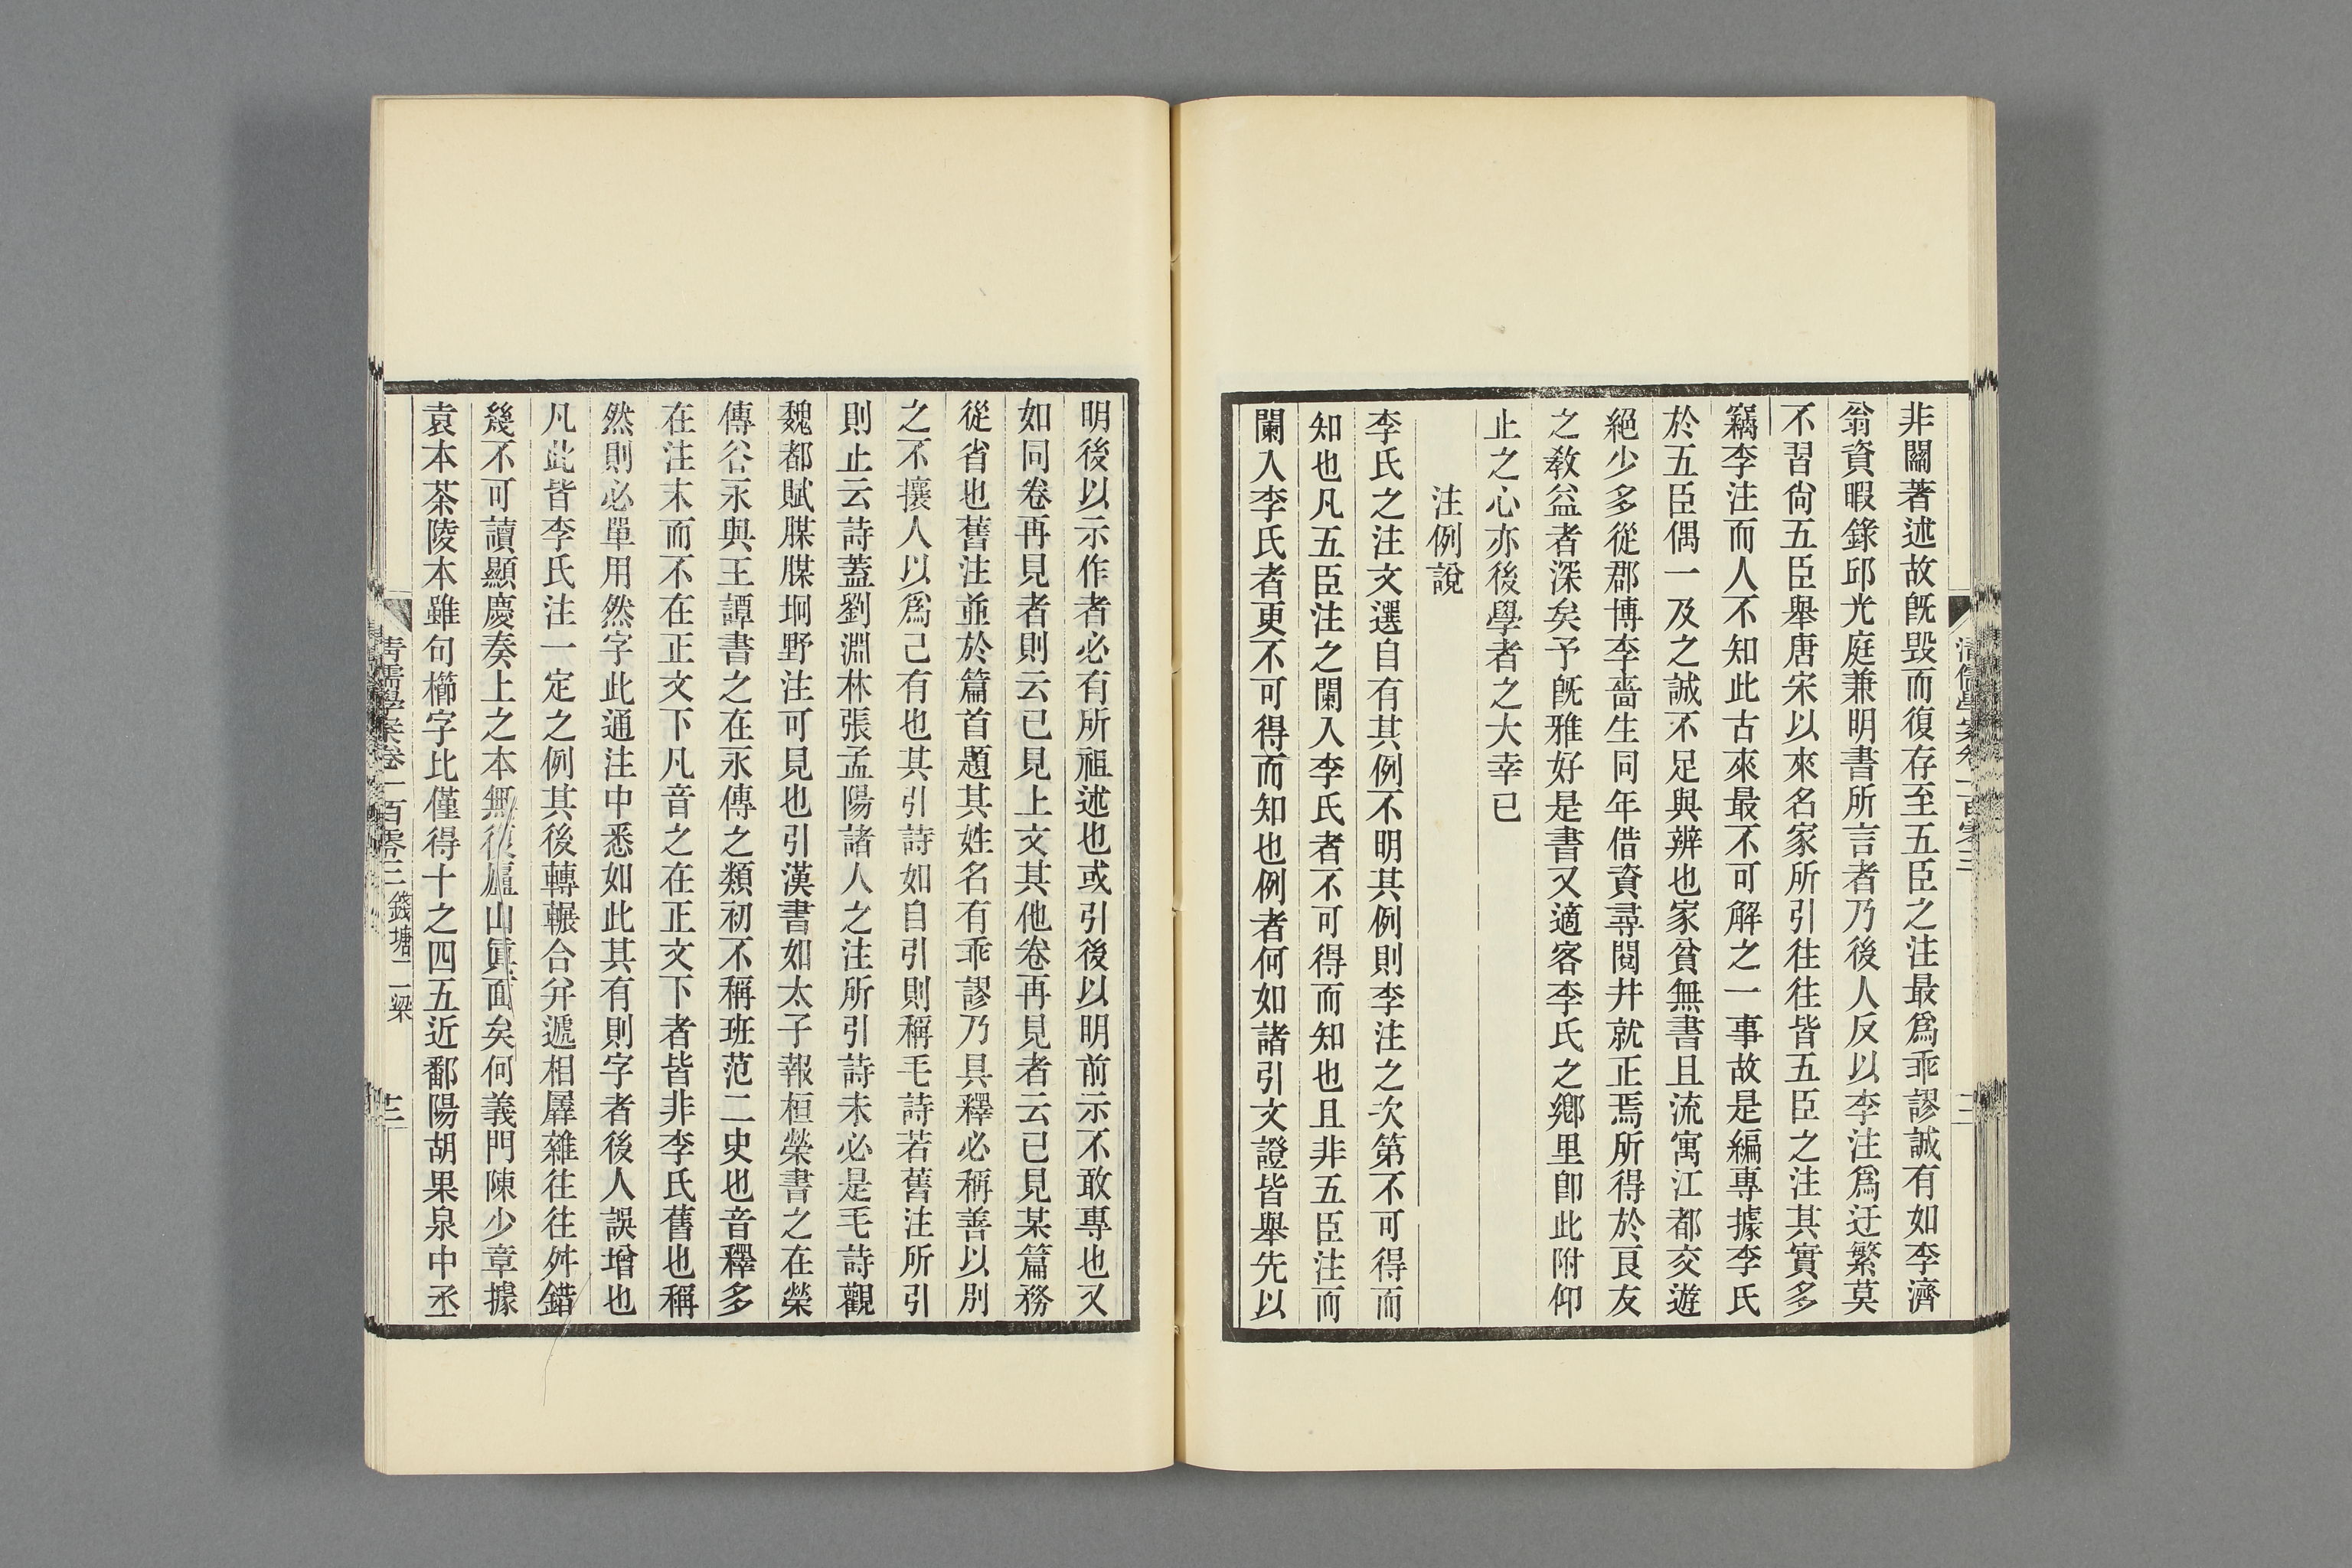 非關著述故旣毀而復存至五臣之注最爲乖謬誠有如李濟
翁資暇錄邱光庭兼明書所言者乃後人反以李注爲迂繁莫
不習尙五臣舉唐宋以來名家所引往往皆五臣之注其實多
竊李注而人不知此古來最不可解之一事故是編專據李氏
於五臣偶一及之誠不足與辨也家貧無書且流寓江都交遊
絕少多從郡博李嗇生同年借資尋閱幷就正焉所得於良友
之敎益者深矣予旣雅好是書又適客李氏之鄕里卽此附仰
止之心亦後學者之大幸已
注例說
李氏之注文選自有其例不明其例則李注之次第不可得而
知也凡五臣注之闌入李氏者不可得而知也且非五臣注而
闌入李氏者更不可得而知也例者何如諸引文證皆舉先以
明後以示作者必有所祖述也或引後以明前示不敢專也又
如同卷再見者則云已見上文其他卷再見者云已見某篇務
從省也舊注並於篇首題其姓名有乖謬乃具釋必稱善以別
之不攘人以爲己有也其引詩如自引則稱毛詩若舊注所引
則止云詩蓋劉淵林張孟陽諸人之注所引詩未必是毛詩觀
魏都賦腜腜坰野注可見也引漢書如太子報桓榮書之在榮
傳谷永與王譚書之在永傳之類初不稱班范二史也音釋多
在注末而不在正文下凡音之在正文下者皆非李氏舊也稱
然則必單用然字此通注中悉如此其有則字者後人誤增也
凡此皆李氏注一定之例其後轉輾合幷遞相羼雜往往舛錯
幾不可讀顯慶奏上之本無從廬山眞面矣何義門陳少章據
袁本茶陵本雖句櫛字比僅得十之四五近鄱陽胡果泉中丞
清儒學案卷一百零三 錢塘二梁